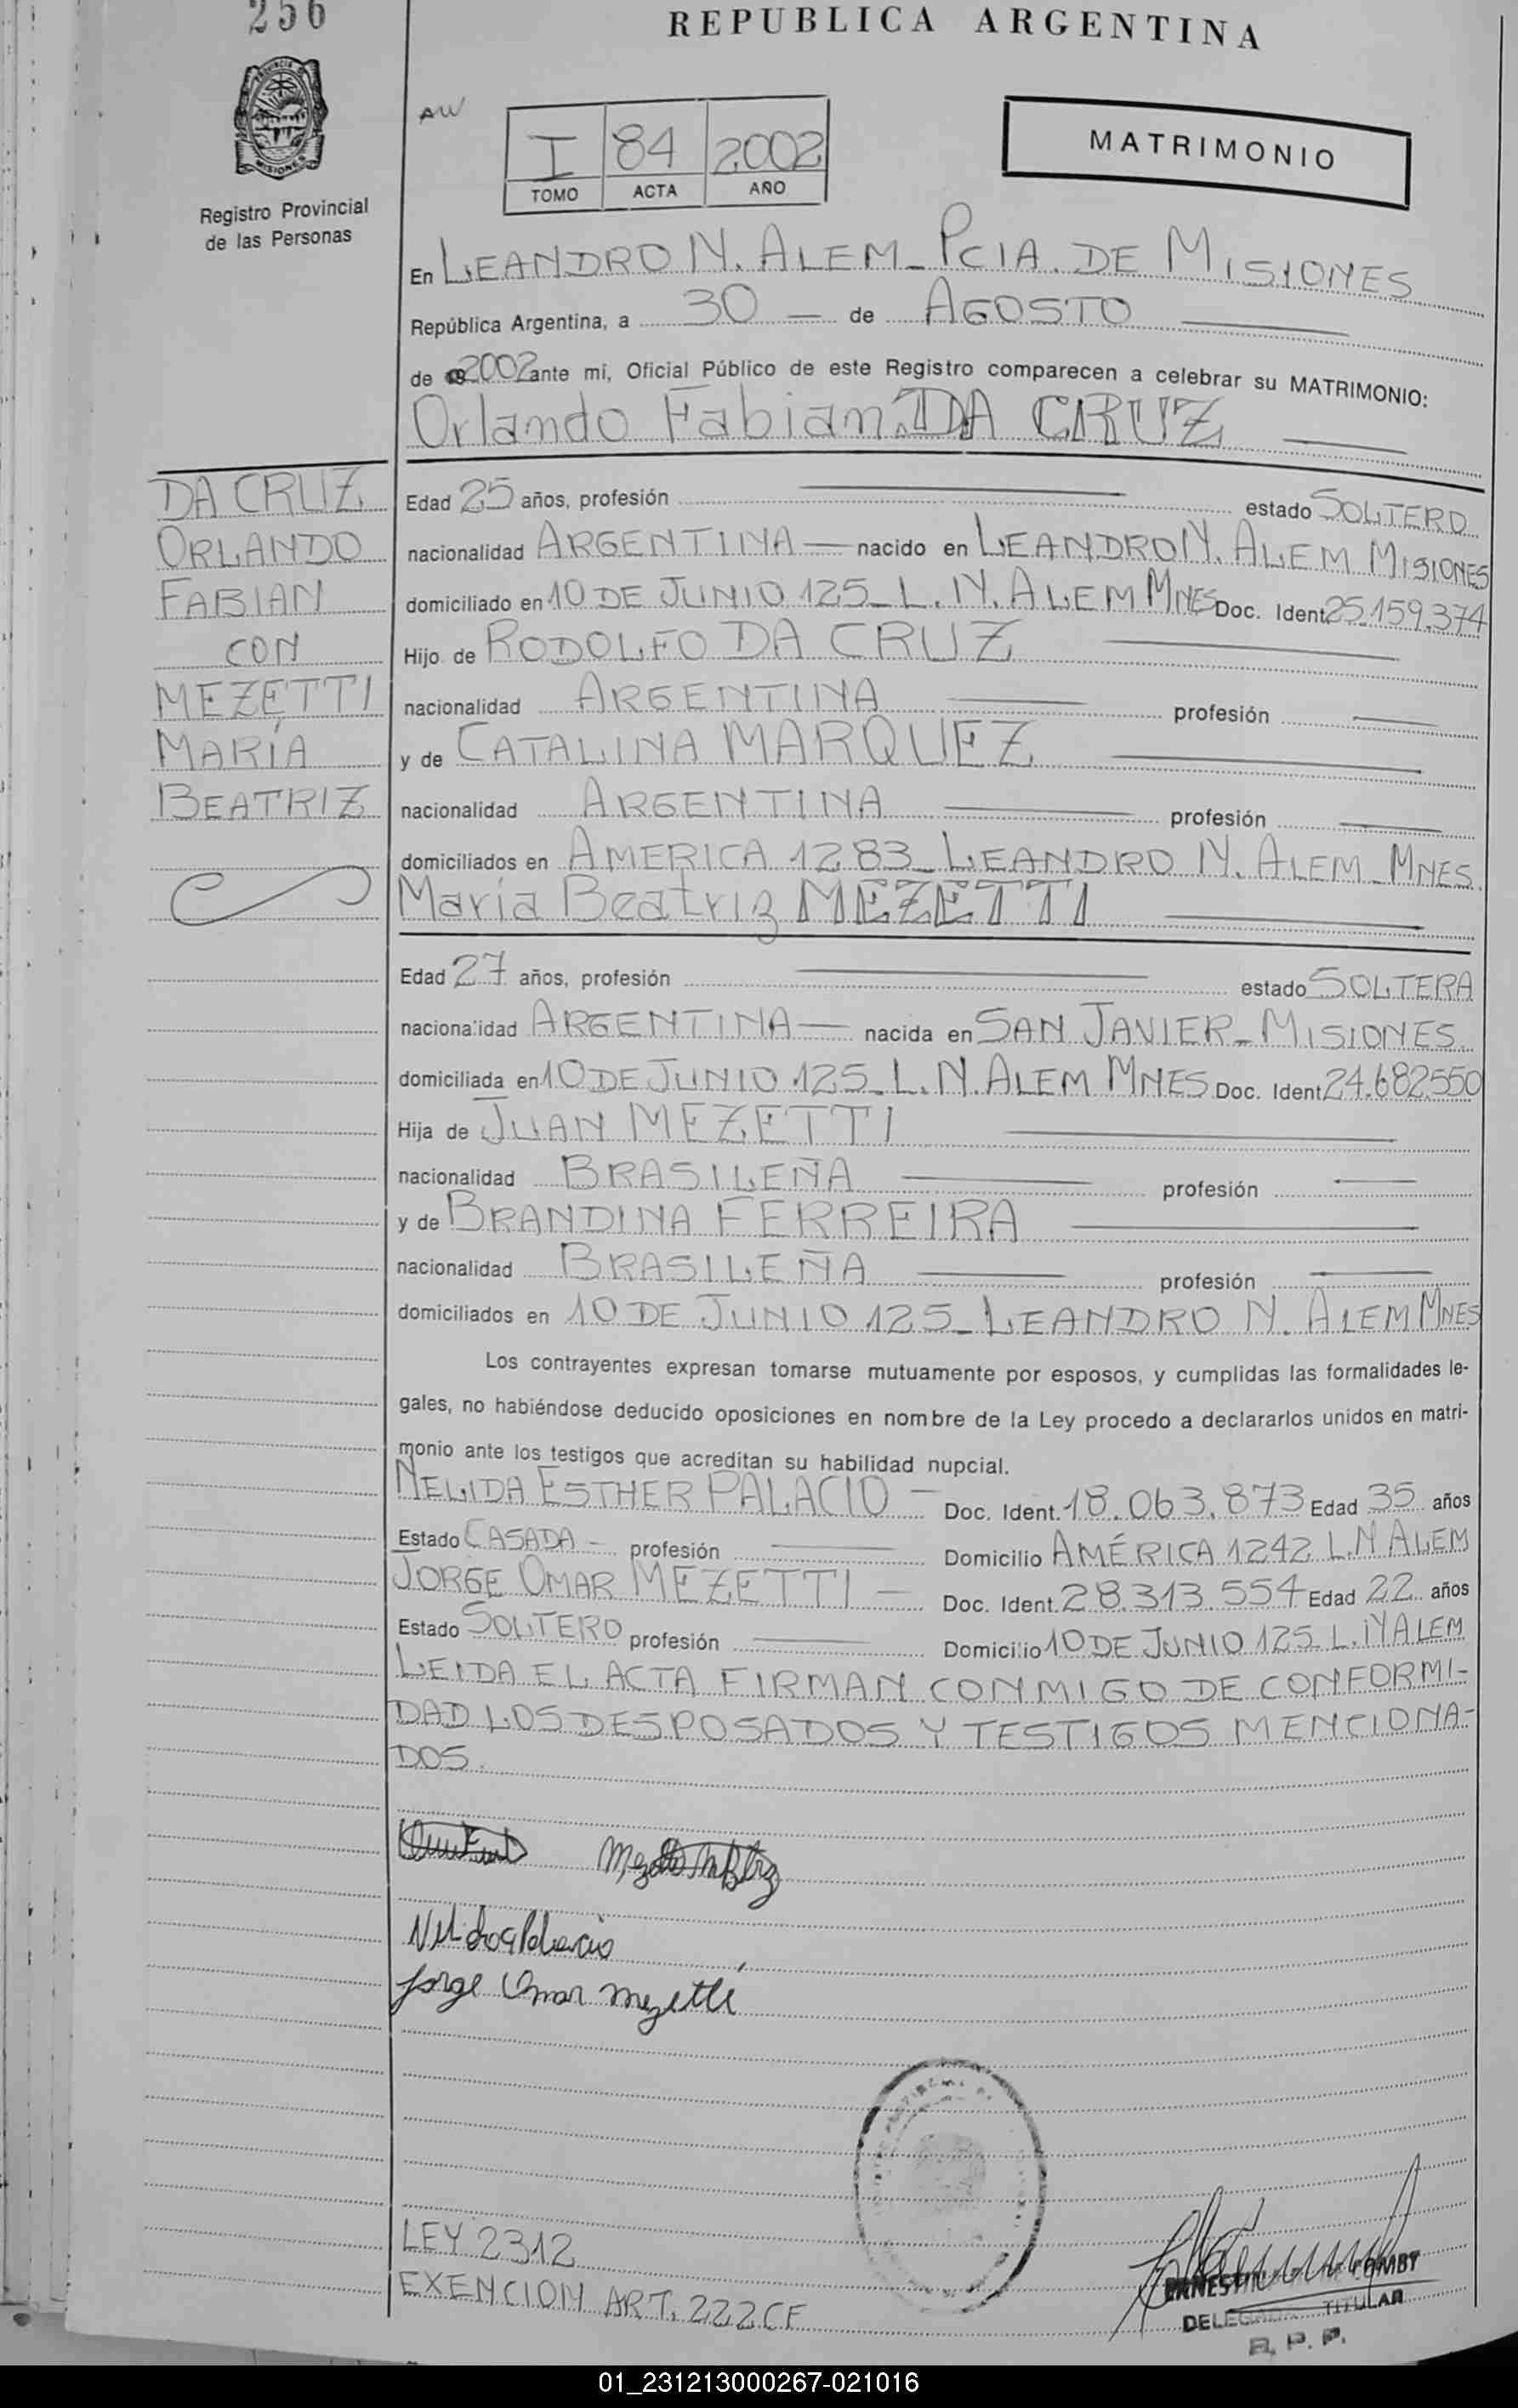 256
REPUBLICA ARGENTINA
PROVINCIA D
MISIONES
Registro Provincial
de las Personas
AW
I 84 2002
TOMO ACTA AÑO
MATRIMONIO
En LEANDRO N. ALEM_ PCIA. DE MISIONES
República Argentina, a 30 — de AGOSTO
de 2002 ante mí, Oficial Público de este Registro comparecen a celebrar su MATRIMONIO:
Orlando Fabian DA CRUZ
DA CRUZ
ORLANDO
FABIAN
CON
MEZETTI
MARÍA
BEATRIZ
Edad 25 años, profesión — estado SOLTERO
nacionalidad ARGENTINA — nacido en LEANDRO N. ALEM MISIONES
domiciliado en 10 DE JUNIO 125_ L. N. ALEM MNES Doc. Ident. 25.159.374
Hijo de RODOLFO DA CRUZ
nacionalidad ARGENTINA — profesión —
y de CATALINA MARQUEZ
nacionalidad ARGENTINA — profesión —
domiciliados en AMERICA 1283_ LEANDRO N. ALEM_ MNES.
María Beatriz MEZETTI
Edad 27 años, profesión — estado SOLTERA
nacionalidad ARGENTINA — nacida en SAN JAVIER_ MISIONES.
domiciliada en 10 DE JUNIO 125_ L. N. ALEM MNES. Doc. Ident. 24.682.550
Hija de JUAN MEZETTI
nacionalidad BRASILEÑA — profesión —
y de BRANDINA FERREIRA
nacionalidad BRASILEÑA — profesión —
domiciliados en 10 DE JUNIO 125_ LEANDRO N. ALEM MNES
Los contrayentes expresan tomarse mutuamente por esposos, y cumplidas las formalidades le-
gales, no habiéndose deducido oposiciones en nombre de la Ley procedo a declararlos unidos en matri-
monio ante los testigos que acreditan su habilidad nupcial.
NELIDA ESTHER PALACIO — Doc. Ident. 18.063.873 Edad 35 años
Estado CASADA — profesión — Domicilio AMÉRICA 1242 L.N ALEM
JORGE OMAR MEZETTI — Doc. Ident. 28.313.554 Edad 22 años
Estado SOLTERO profesión — Domicilio 10 DE JUNIO 125 L. N ALEM
LEIDA EL ACTA FIRMAN CONMIGO DE CONFORMI-
DAD LOS DESPOSADOS Y TESTIGOS MENCIONA-
DOS.
Jorge Omar Mezetti
LEY 2312
EXENCION ART. 222 CF
DELEGADA TITULAR
R. P. P.
01_231213000267-021016